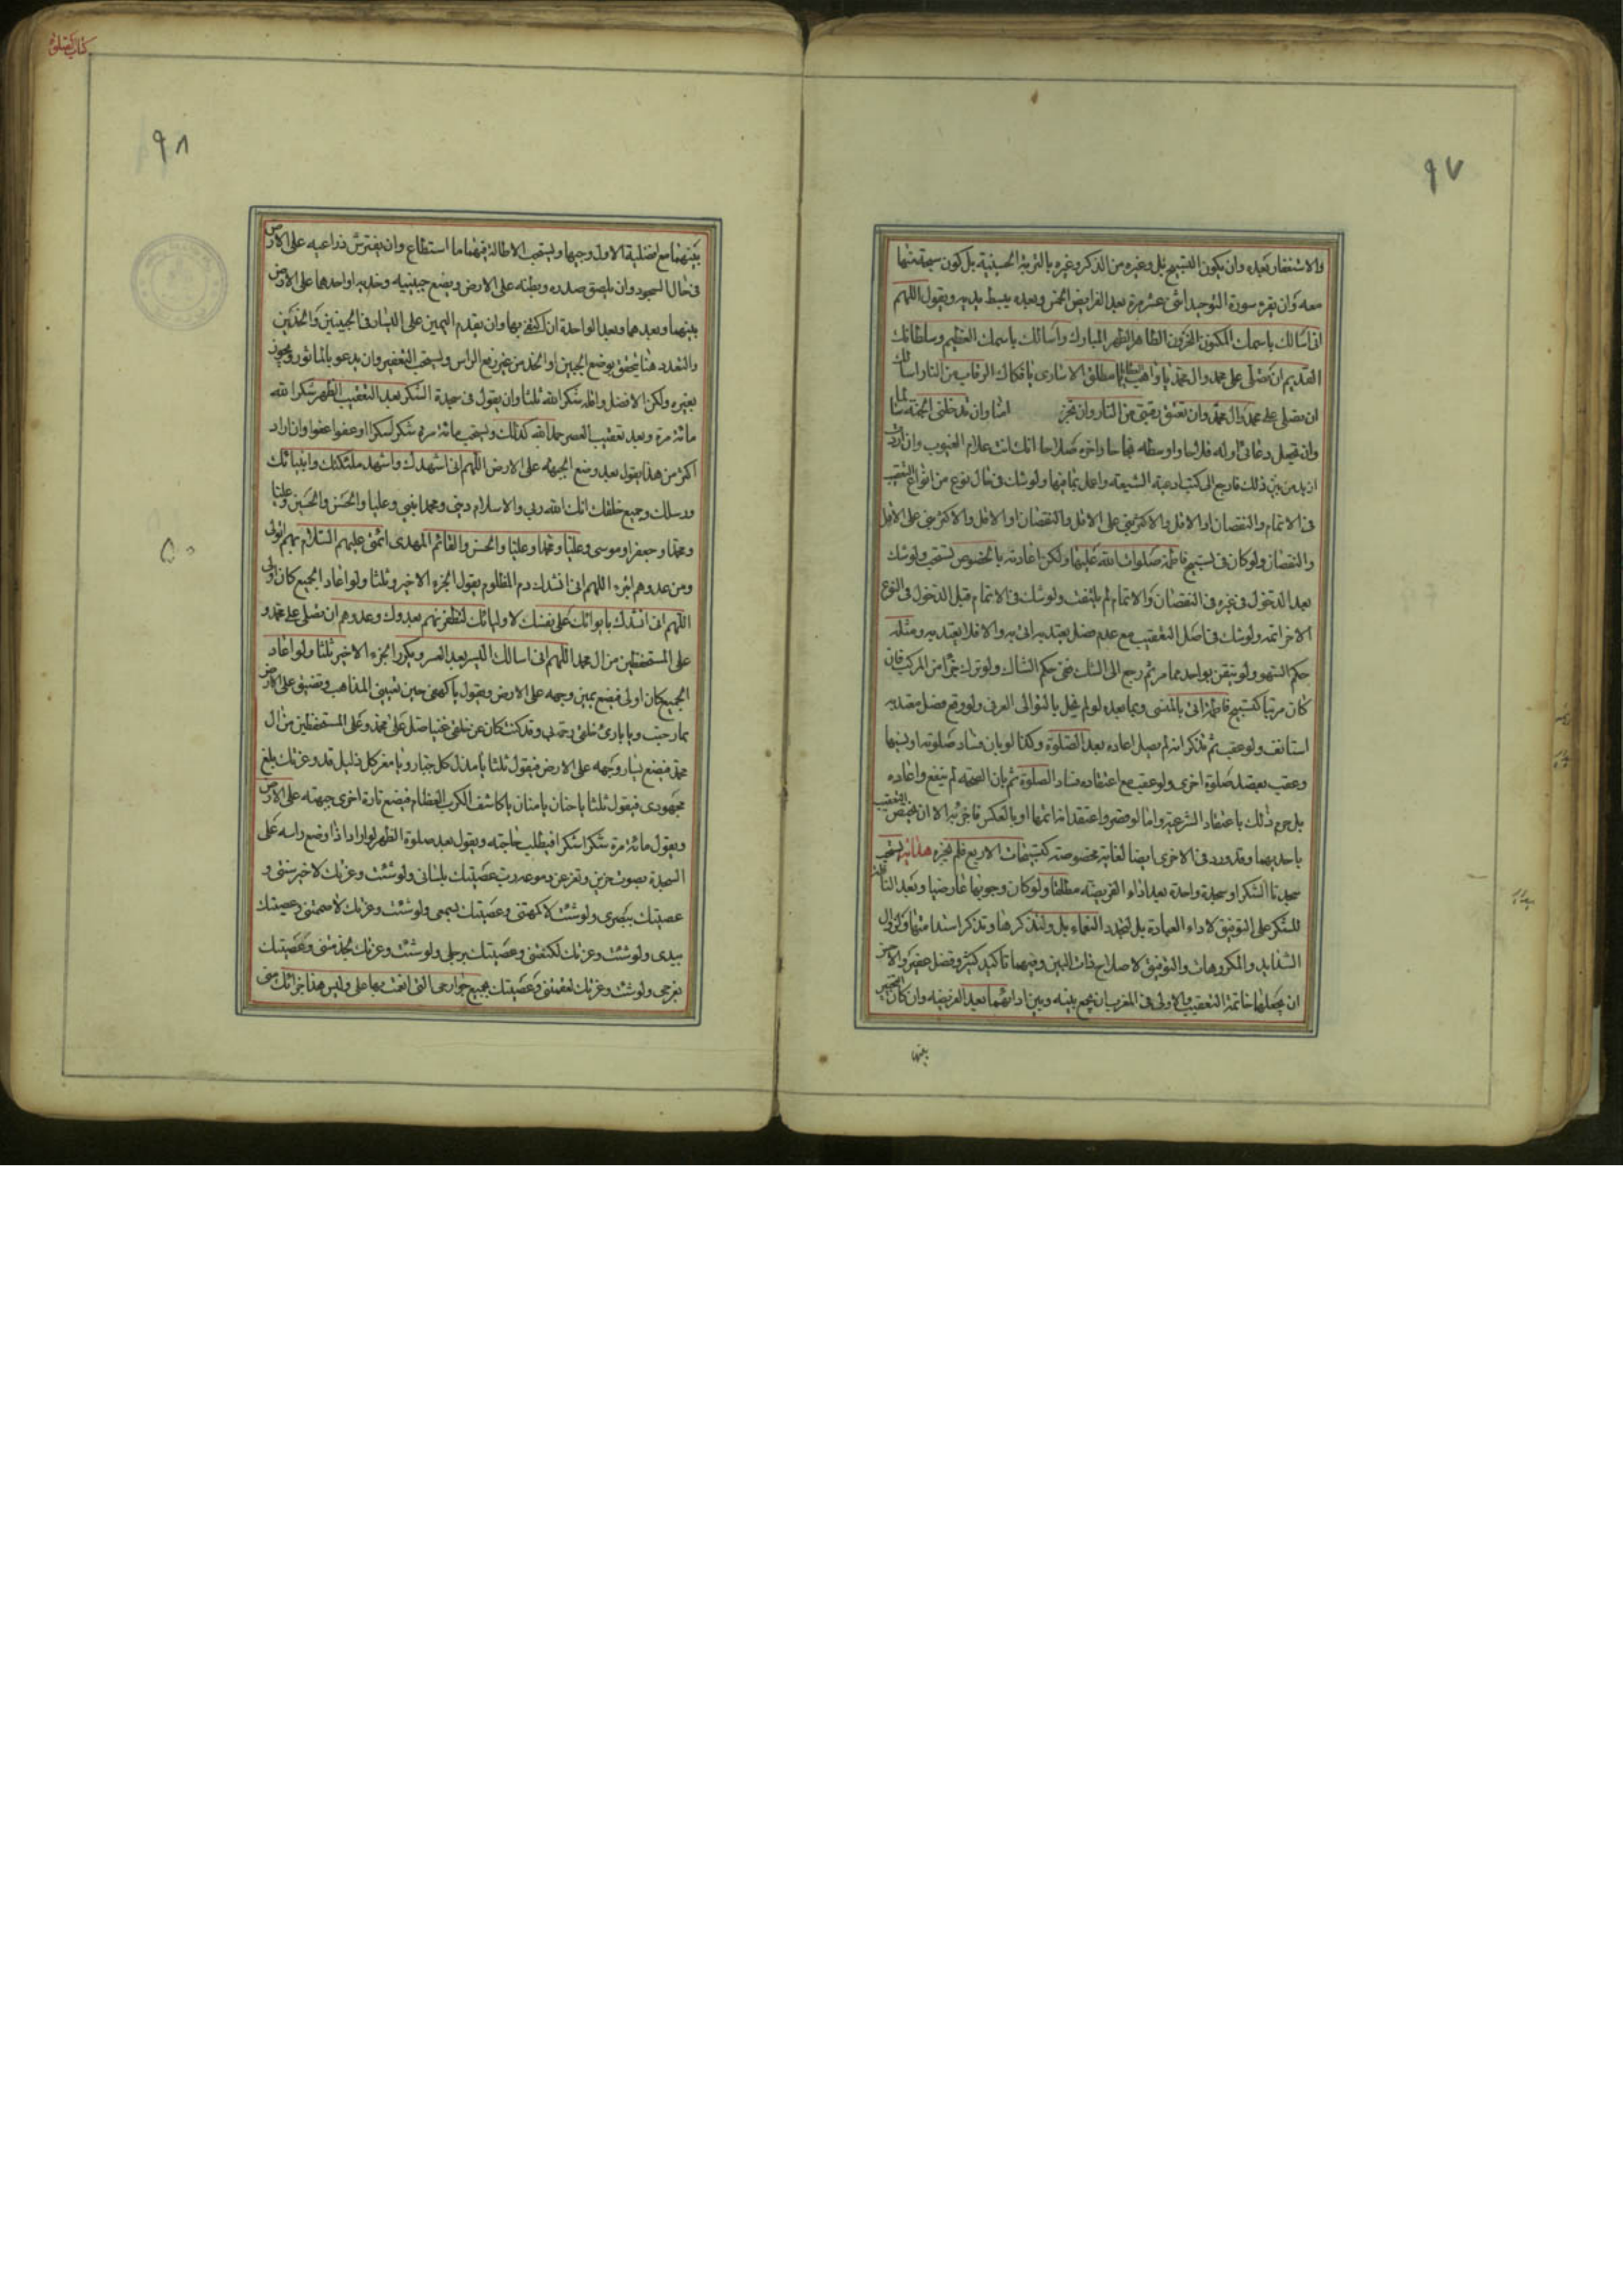 ٩٧
والاستغفار بعده وان يكون التسبيح بل وغيره من الذكر وغيره بالتربة الحسينية بل كون سبحته منها
معه وان يقرء سورة التوحيد اثنى عشر مرة بعد الفرايض الخمس وبعده يبسط يديه ويقول اللهم
انى اسالك باسمك المكنون المخزون الطاهر الطهر المبارك واسالك باسمك العظيم وسلطانك
القديم ان تصلى على محمد وال محمد يا واهب العطايا يا مطلق الاسارى يا فكاك الرقاب من النار اسالك
ان تصلى على محمد وال محمد وان تعتق رقبتى من النار وان تخرجنى امنا وان تدخلنى الجنة سالما
وان تجعل دعائى اوله فلاحا واوسطه نجاحا واخره صلاحا انك انت علام الغيوب وان اردت
ازيد من ذلك فارجع الى كتب ادعية الشيعة واعمل بما فيها ولو شك فى حال نوع من انواع التعقيب
فى الاتمام والنقصان او الاقل والاكثر بنى على الاقل والنقصان او الاقل والاكثر بنى على الاقل
والنقصان ولو كان فى تسبيح فاطمة صلوات الله عليها ولكن اعادته بالخصوص تستحب ولو شك
بعد الدخول فى غيره فى النقصان والاتمام لم يلتفت ولو شك فى الاتمام قبل الدخول فى النوع
الاخر اتمه ولو شك فى اصل التعقيب مع عدم فصل يعتد به اتى به والا فلا يعتد به ومثله
حكم السهو ولو تيقن بواحد مما مر ثم رجع الى الشك فحكم الشاك ولو ترك جزءا من المركب فان
كان مرتبا كتسبيح فاطمة اتى بالمنسى وبما بعده لو لم يخل بالتوالى العرفى ولو وقع فصل معتد به
استانف ولو عقب ثم تذكر انه لم يصل اعاده بعد الصلوة وكذا لو بان فساد صلوته او نسيها
وعقب بعد صلوة اخرى ولو عقب مع اعتقاده فساد الصلوة ثم بان الصحة لم ينفع واعاده
بل حرم ذلك باعتقاد الشرعية واما لو قصر واعتقد انه اتمها او بالعكس فاجزئه الا ان يختص التعقيب
باحديهما وقد ورد فى الاخرى ايضا لغاية مخصوصة كتسبيحات الاربع فلم يجزه هداية يستحب
سجدتا الشكر او سجدة واحدة بعد اداء الفريضة مطلقا ولو كان وجوبها عارضيا وبعد النافلة
للشكر على التوفيق لاداء العبادة بل لتجدد النعماء بل ولتذكرها وتذكر استدامتها وكزوال
الشدايد والمكروهات والتوفيق لاصلاح ذات البين وفيهما تاكيد كثير وفضل عظيم والاحرى
ان يجعلها خاتمة التعقيب والاولى فى المغرب ان يجمع بينه وبين ادائهما بعد الفريضة وان كان التخيير
بينها
كتاب الصلوة
٩٨
بينهما مع افضلية الاول وجيها ويستحب الاطالة فيهما ما استطاع وان يفترش ذراعيه على الارض
فى حال السجود وان يلصق صدره وبطنه على الارض ويضع جبينيه وخديه او احدهما على الارض
بينهما وبعدهما وبعد الواحدة ان اكتفى بها وان يقدم اليمين على اليسار فى الجبينين والخدين
والتعدد هنا يتحقق بوضع الجبين او الخد من غير رفع الراس ويستحب التعفير وان يدعو بالماثور ويجوز
بغيره ولكن الافضل واقله شكرا لله ثلثا وان يقول فى سجدة الشكر بعد التعقيب الظهر شكرا لله
مائة مرة وبعد تعقيب العصر حمدا لله كذلك ويستحب مائة مرة شكرا شكرا او عفوا عفوا وان اراد
اكثر من هذا يقول بعد وضع الجبهة على الارض اللهم انى اشهدك واشهد ملئكتك وانبيائك
ورسلك وجميع خلقك انك الله ربى والاسلام دينى ومحمدا نبيى وعليا والحسن والحسين وعليا
ومحمدا وجعفرا وموسى وعليا ومحمدا وعليا والحسن والقائم المهدى ائمتى عليهم السلام بهم اتولى
ومن عدوهم اتبرء اللهم انى انشدك دم المظلوم يقول الجزء الاخير ثلثا ولو اعاد الجميع كان اولى
اللهم انى انشدك بايوائك على نفسك لاوليائك لتظفرنهم بعدوك وعدوهم ان تصلى على محمد و
على المستحفظين من ال محمد اللهم انى اسالك اليسر بعد العسر ويكرر الجزء الاخير ثلثا ولو اعاد
الجميع كان اولى فيضع يمين وجهه على الارض ويقول يا كهفى حين تعيينى المذاهب وتضيق على الارض
بما رحبت ويا بارئ خلقى رحمة بى وقد كنت كان عن خلقى غنيا صل على محمد وعلى المستحفظين من ال
محمد فيضع يسار وجهه على الارض فيقول ثلثا يا مذل كل جبار ويا معز كل ذليل قد وعزتك بلغ
مجهودى فيقول ثلثا يا حنان يا منان يا كاشف الكرب العظام فيضع تارة اخرى جبهته على الارض
ويقول مائة مرة شكرا شكرا فيطلب حاجته ويقول بعد صلوة الظهر لو اراد اذا وضع راسه على
السجدة بصوت حزين وتغرغر دموعه رب عصيتك بلسانى ولو شئت وعزتك لاخرستنى و
عصيتك ببصرى ولو شئت لاكمهتنى وعصيتك بسمعى ولو شئت وعزتك لاصممتنى وعصيتك
بيدى ولو شئت وعزتك لكنعتنى وعصيتك برجلى ولو شئت وعزتك لجذمتنى وعصيتك
بفرجى ولو شئت وعزتك لعقمتنى وعصيتك بجميع جوارحى التى انعمت بها على وليس هذا جزائك منى
٥٠